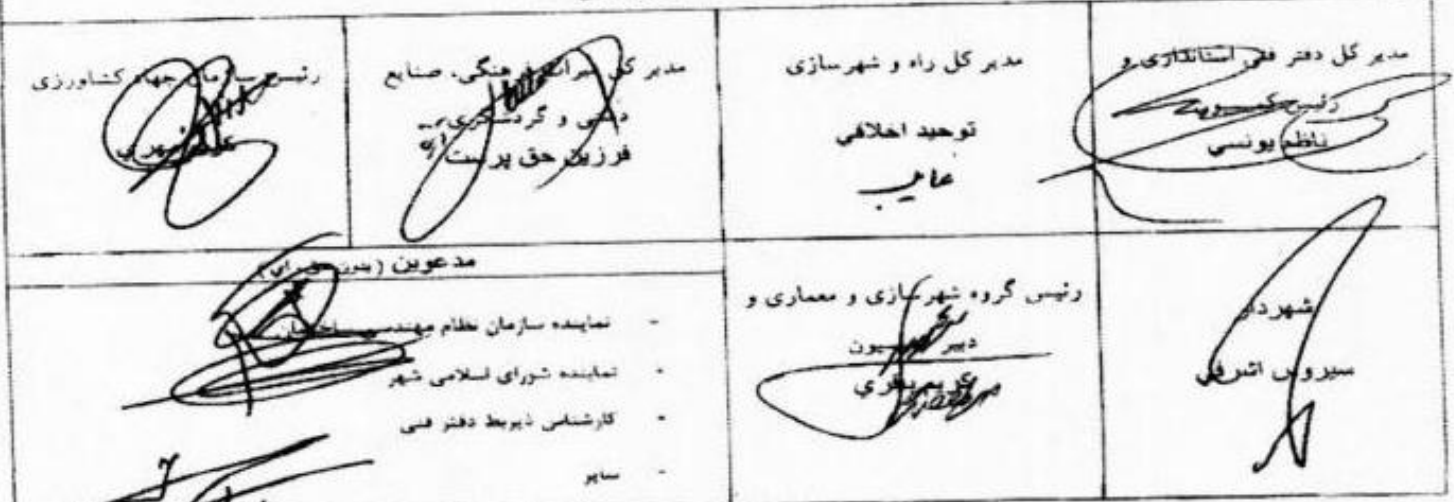 مدیر کل دفتر فنی استانداری و
رئیس
ناظم یونسی
مدیر کل راه و شهرسازی
توحید اخلاقی
مدیر کل میراث فرهنگی، صنایع
دستی و گردشگری
فرزین حق پرست
رئیس سازمان جهاد کشاورزی
شهردار
سیروس اشرفی
رئیس گروه شهرسازی و معماری و
دبیر
مدعوین (بدون حق رای)
- نماینده سازمان نظام مهندسی ساختمان
- نماینده شورای اسلامی شهر
- کارشناس ذیربط دفتر فنی
- سایر